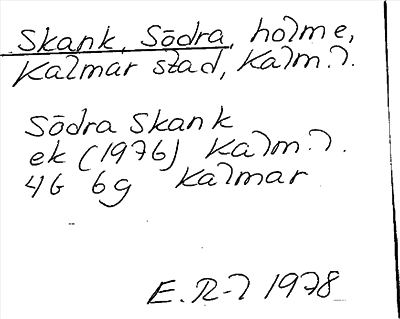 Skank, Södra, holme,
Kalmar stad, Kalm. l.
Södra Skank
ek (1976) Kalm. l.
4G 6g Kalmar
E. R-l 1978